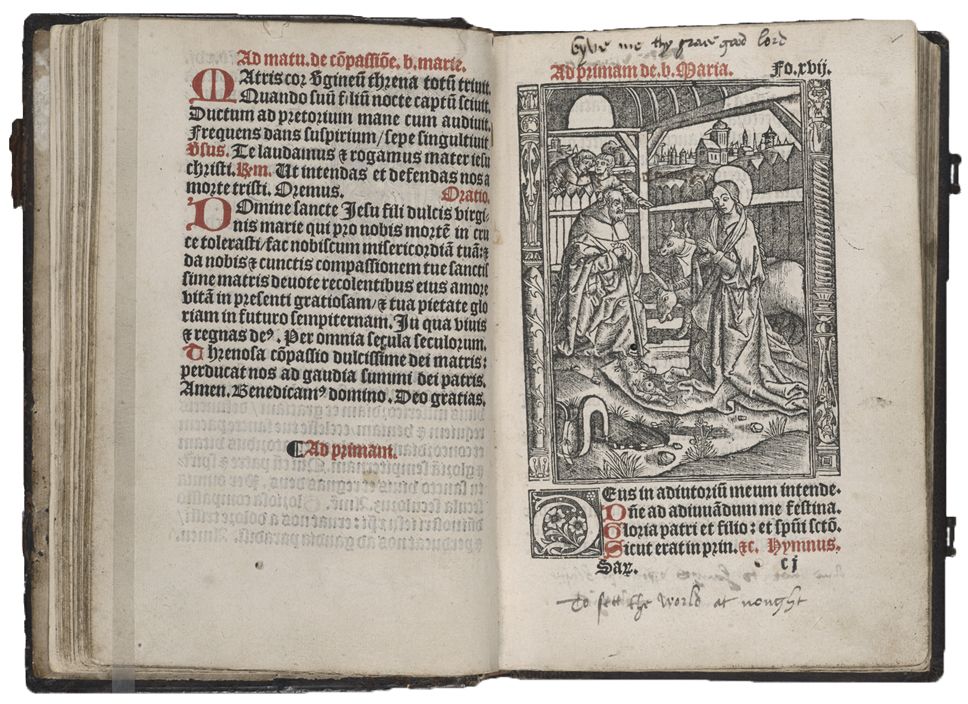 Ad matu. de cõpassiõe. b. marie.
MAtris cor v̓gineũ threna totũ triuit
Quando suũ filiũ nocte captũ sciuit.
Ductum ad pretorium mane cum audiuit.
Frequens dans suspirium/ sepe singultiuit
Ꝟsus. Te laudamus ⁊ rogamus mater iesu
christi. Rem. Ut intendas et defendas nos a
morte tristi. Oremus. Oratio.
DOmine sancte Jesu fili dulcis virgi-
nis marie qui pro nobis mortẽ in cru
ce tolerasti/ fac nobiscum misericordiã tuã: ⁊
da nobis ⁊ cunctis compassionem tue sanctis
sime matris deuote recolentibus eius amore
vitã in presenti gratiosam/ ⁊ tua pietate glo
riam in futuro sempiternam. In qua viuis
⁊ regnas deꝰ. Per omnia secula seculorum.
Threnosa cõpassio dulcissime dei matris:
perducat nos ad gaudia summi dei patris.
Amen. Benedicamꝰ domino. Deo gratias.
Ad primam.
Gyve me thy grace god lord
Ad primam de. b. Maria. Fo. xvij.
DEus in adiutoriũ meum intende.
Dñe ad adiuuãdum me festina.
Gloria patri et filio: et spũi sctõ.
Sicut erat in prin. ⁊c. Hymnus.
Sax. cj
To sett the world at nought